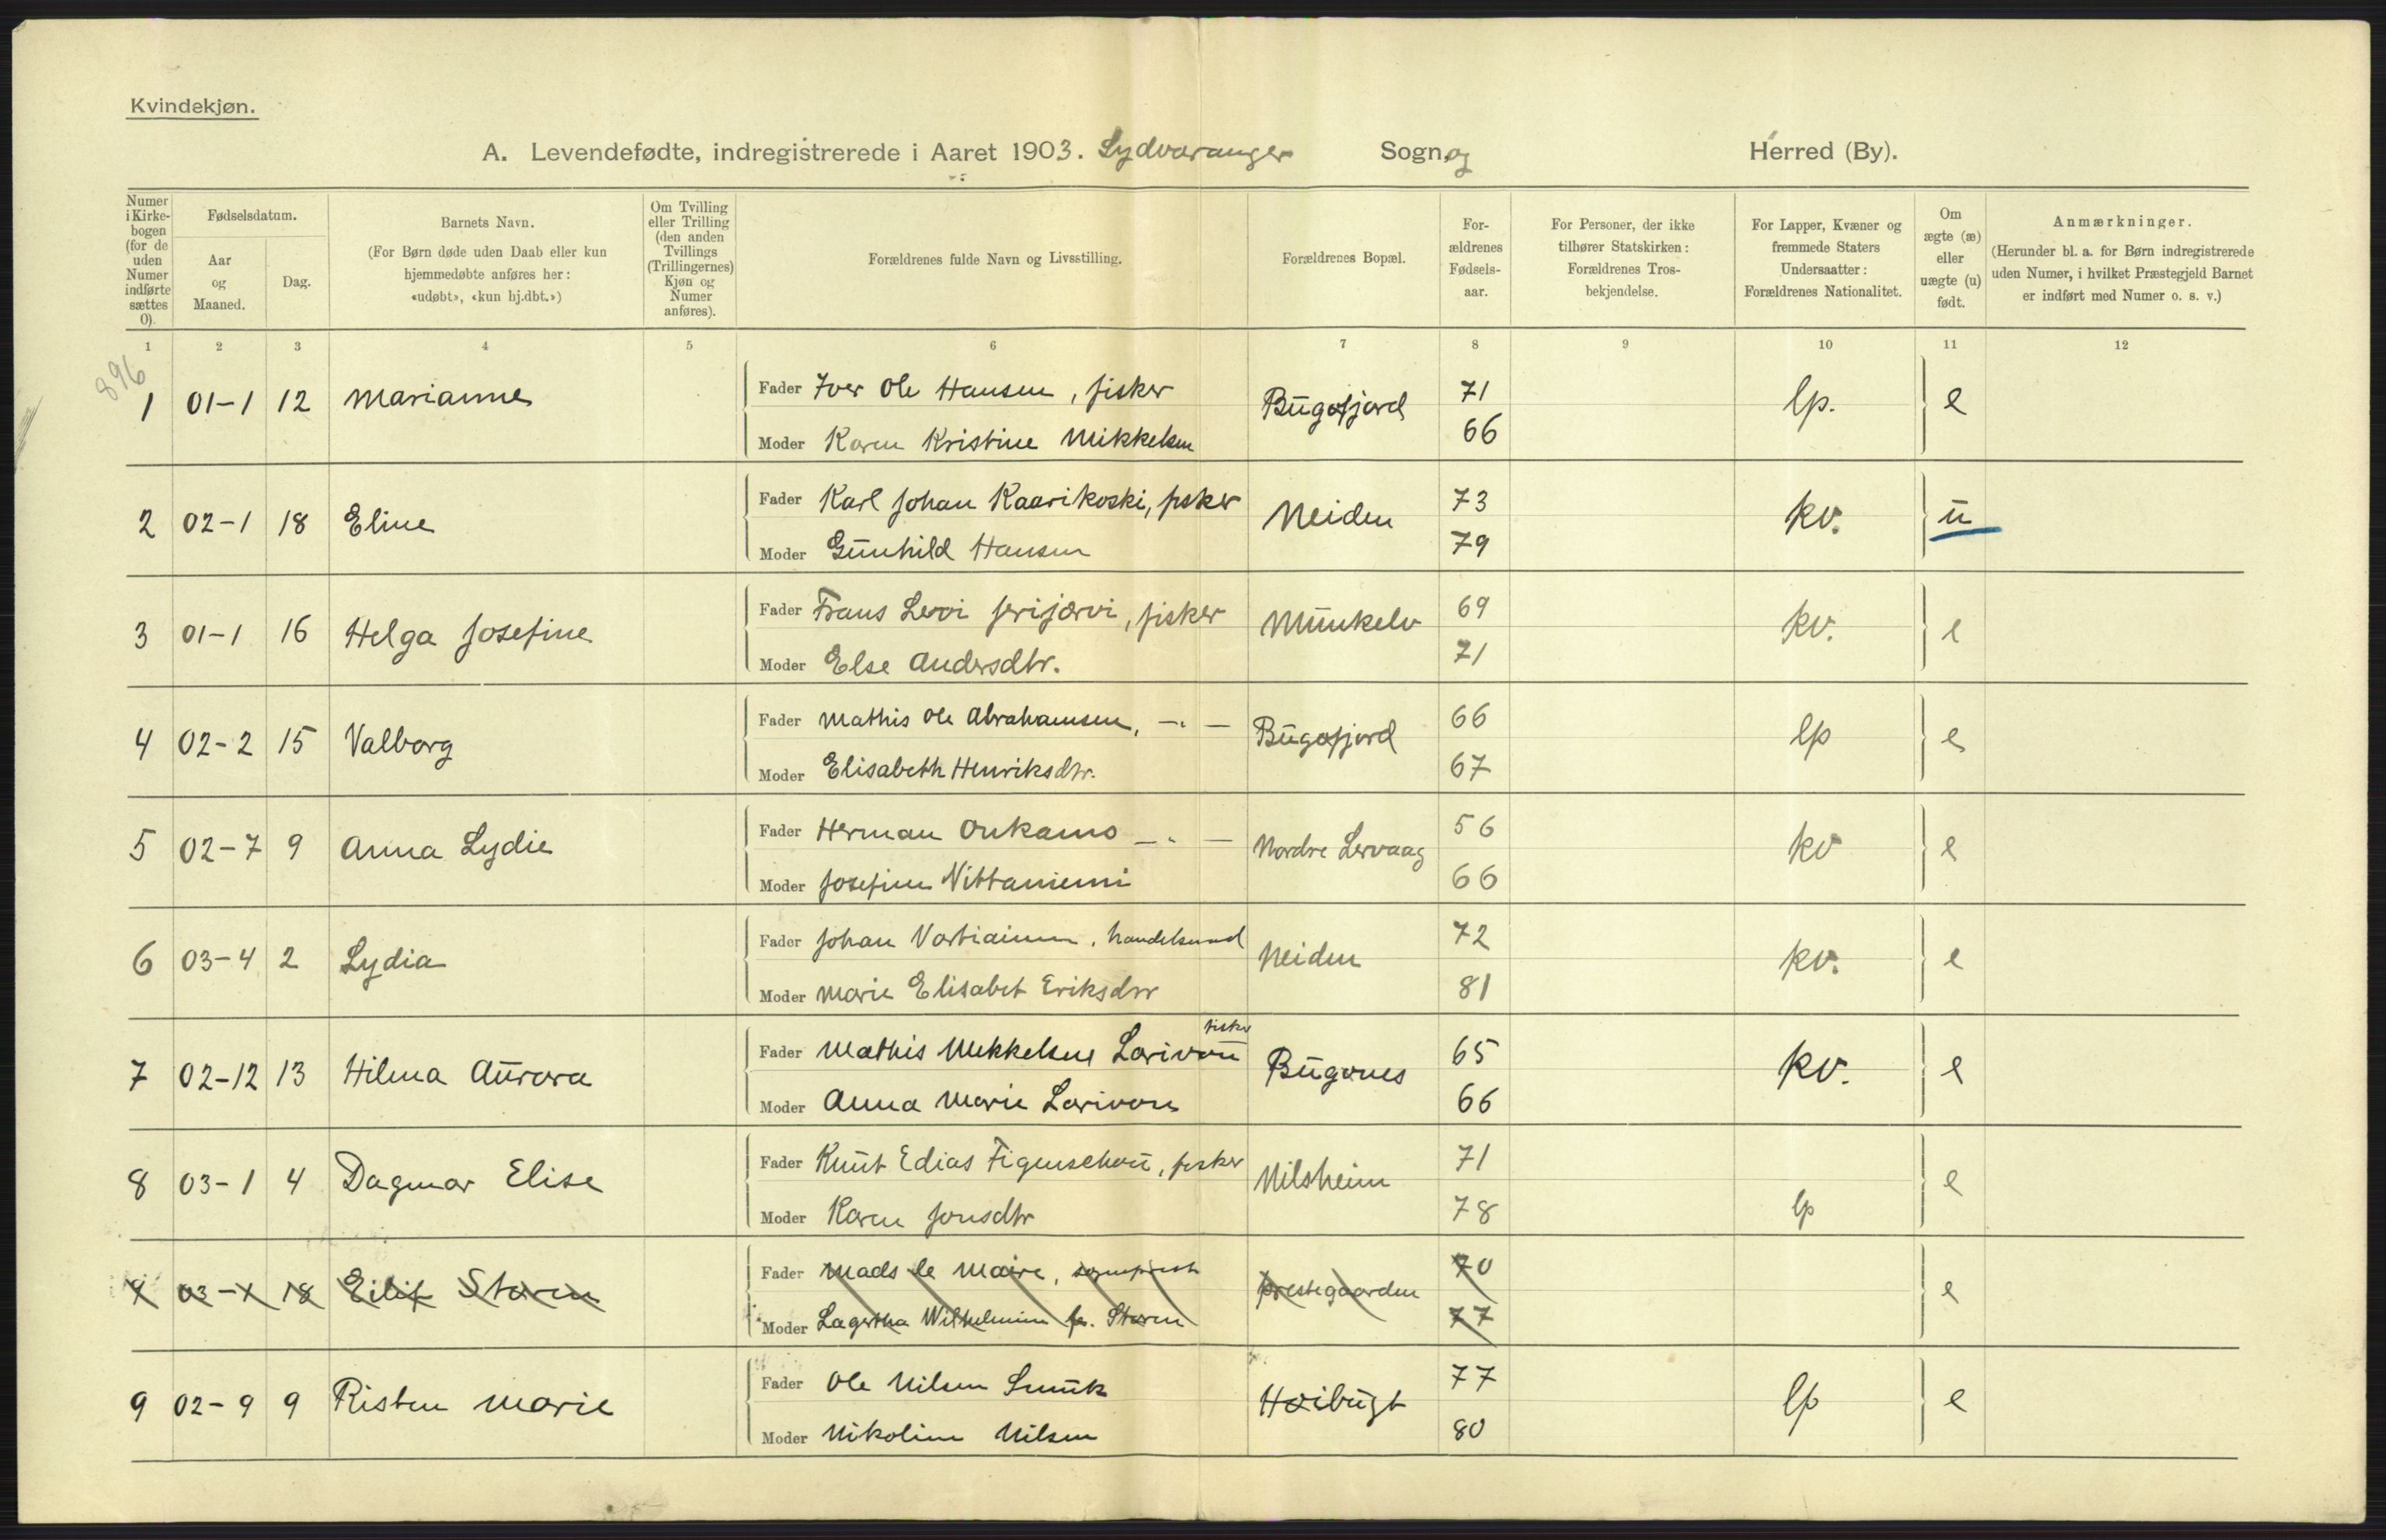 Kvindekjøn.
A. Levendefødte, indregistrerede i Aaret 1903. Sydvaranger Sogn og Herred (By).
Numer i Kirkebogen (for de uden Numer indførte sættes 0).
Fødselsdatum.
Aar og Maaned.
Dag.
Barnets Navn.
(For Børn døde uden Daab eller kun hjemmedøbte anføres her: «udøbt», «kun hj.dbt.»)
Om Tvilling eller Trilling (den anden Tvillings (Trillingernes) Kjøn og Numer anføres).
Forældrenes fulde Navn og Livsstilling.
Forældrenes Bopæl.
Forældrenes Fødselsaar.
For Personer, der ikke tilhører Statskirken: Forældrenes Trosbekjendelse.
For Lapper, Kvæner og fremmede Staters Undersaatter: Forældrenes Nationalitet.
Om ægte (æ) eller uægte (u) født.
Anmærkninger.
(Herunder bl. a. for Børn indregistrerede uden Numer, i hvilket Præstegjeld Barnet er indført med Numer o. s. v.)
1 2 3 4 5 6 7 8 9 10 11 12
896
1 01-1 12 Marianne Fader Iver Ole Hansen, fisker Bugøfjord 71 lp. e
Moder Karen Kristine Mikkelsen 66
2 02-1 18 Eline Fader Karl Johan Kaarikoski, fisker Neiden 73 kv. u
Moder Gunhild Hansen 79
3 01-1 16 Helga Josefine Fader Frans Levi Jerijærvi, fisker Munkelv 69 kv. e
Moder Else Andersdtr. 71
4 02-2 15 Valborg Fader Mathis Ole Abrahamsen, -"- Bugøfjord 66 lp e
Moder Elisabeth Henriksdtr. 67
5 02-7 9 Anna Lydie Fader Herman Onkamo -"- Nordre Lervaag 56 kv e
Moder Josefine Nittaniemi 66
6 03-4 2 Lydia Fader Johan Vartiainen, handelsmand Neiden 72 kv. e
Moder Marie Elisabet Eriksdtr 81
fisker
7 02-12 13 Hilma Aurora Fader Mathis Mikkelsen Larivou Bugønes 65 kv. e
Moder Anna Marie Larivou 66
8 03-1 4 Dagmar Elise Fader Knut Edias Figenschou, fisker Nilsheim 71 e
Moder Karen Jonsdtr 78 lp
9 03-1 18 Eilif Storm Fader Mads le Maire, sogneprest prestegaarden 70 e
Moder Lagertha Wilhelmine f. Storm 77
9 02-9 9 Risten Marie Fader Ole Nilsen Smuk Høibugt 77 lp e
Moder Nikoline Nilsen 80